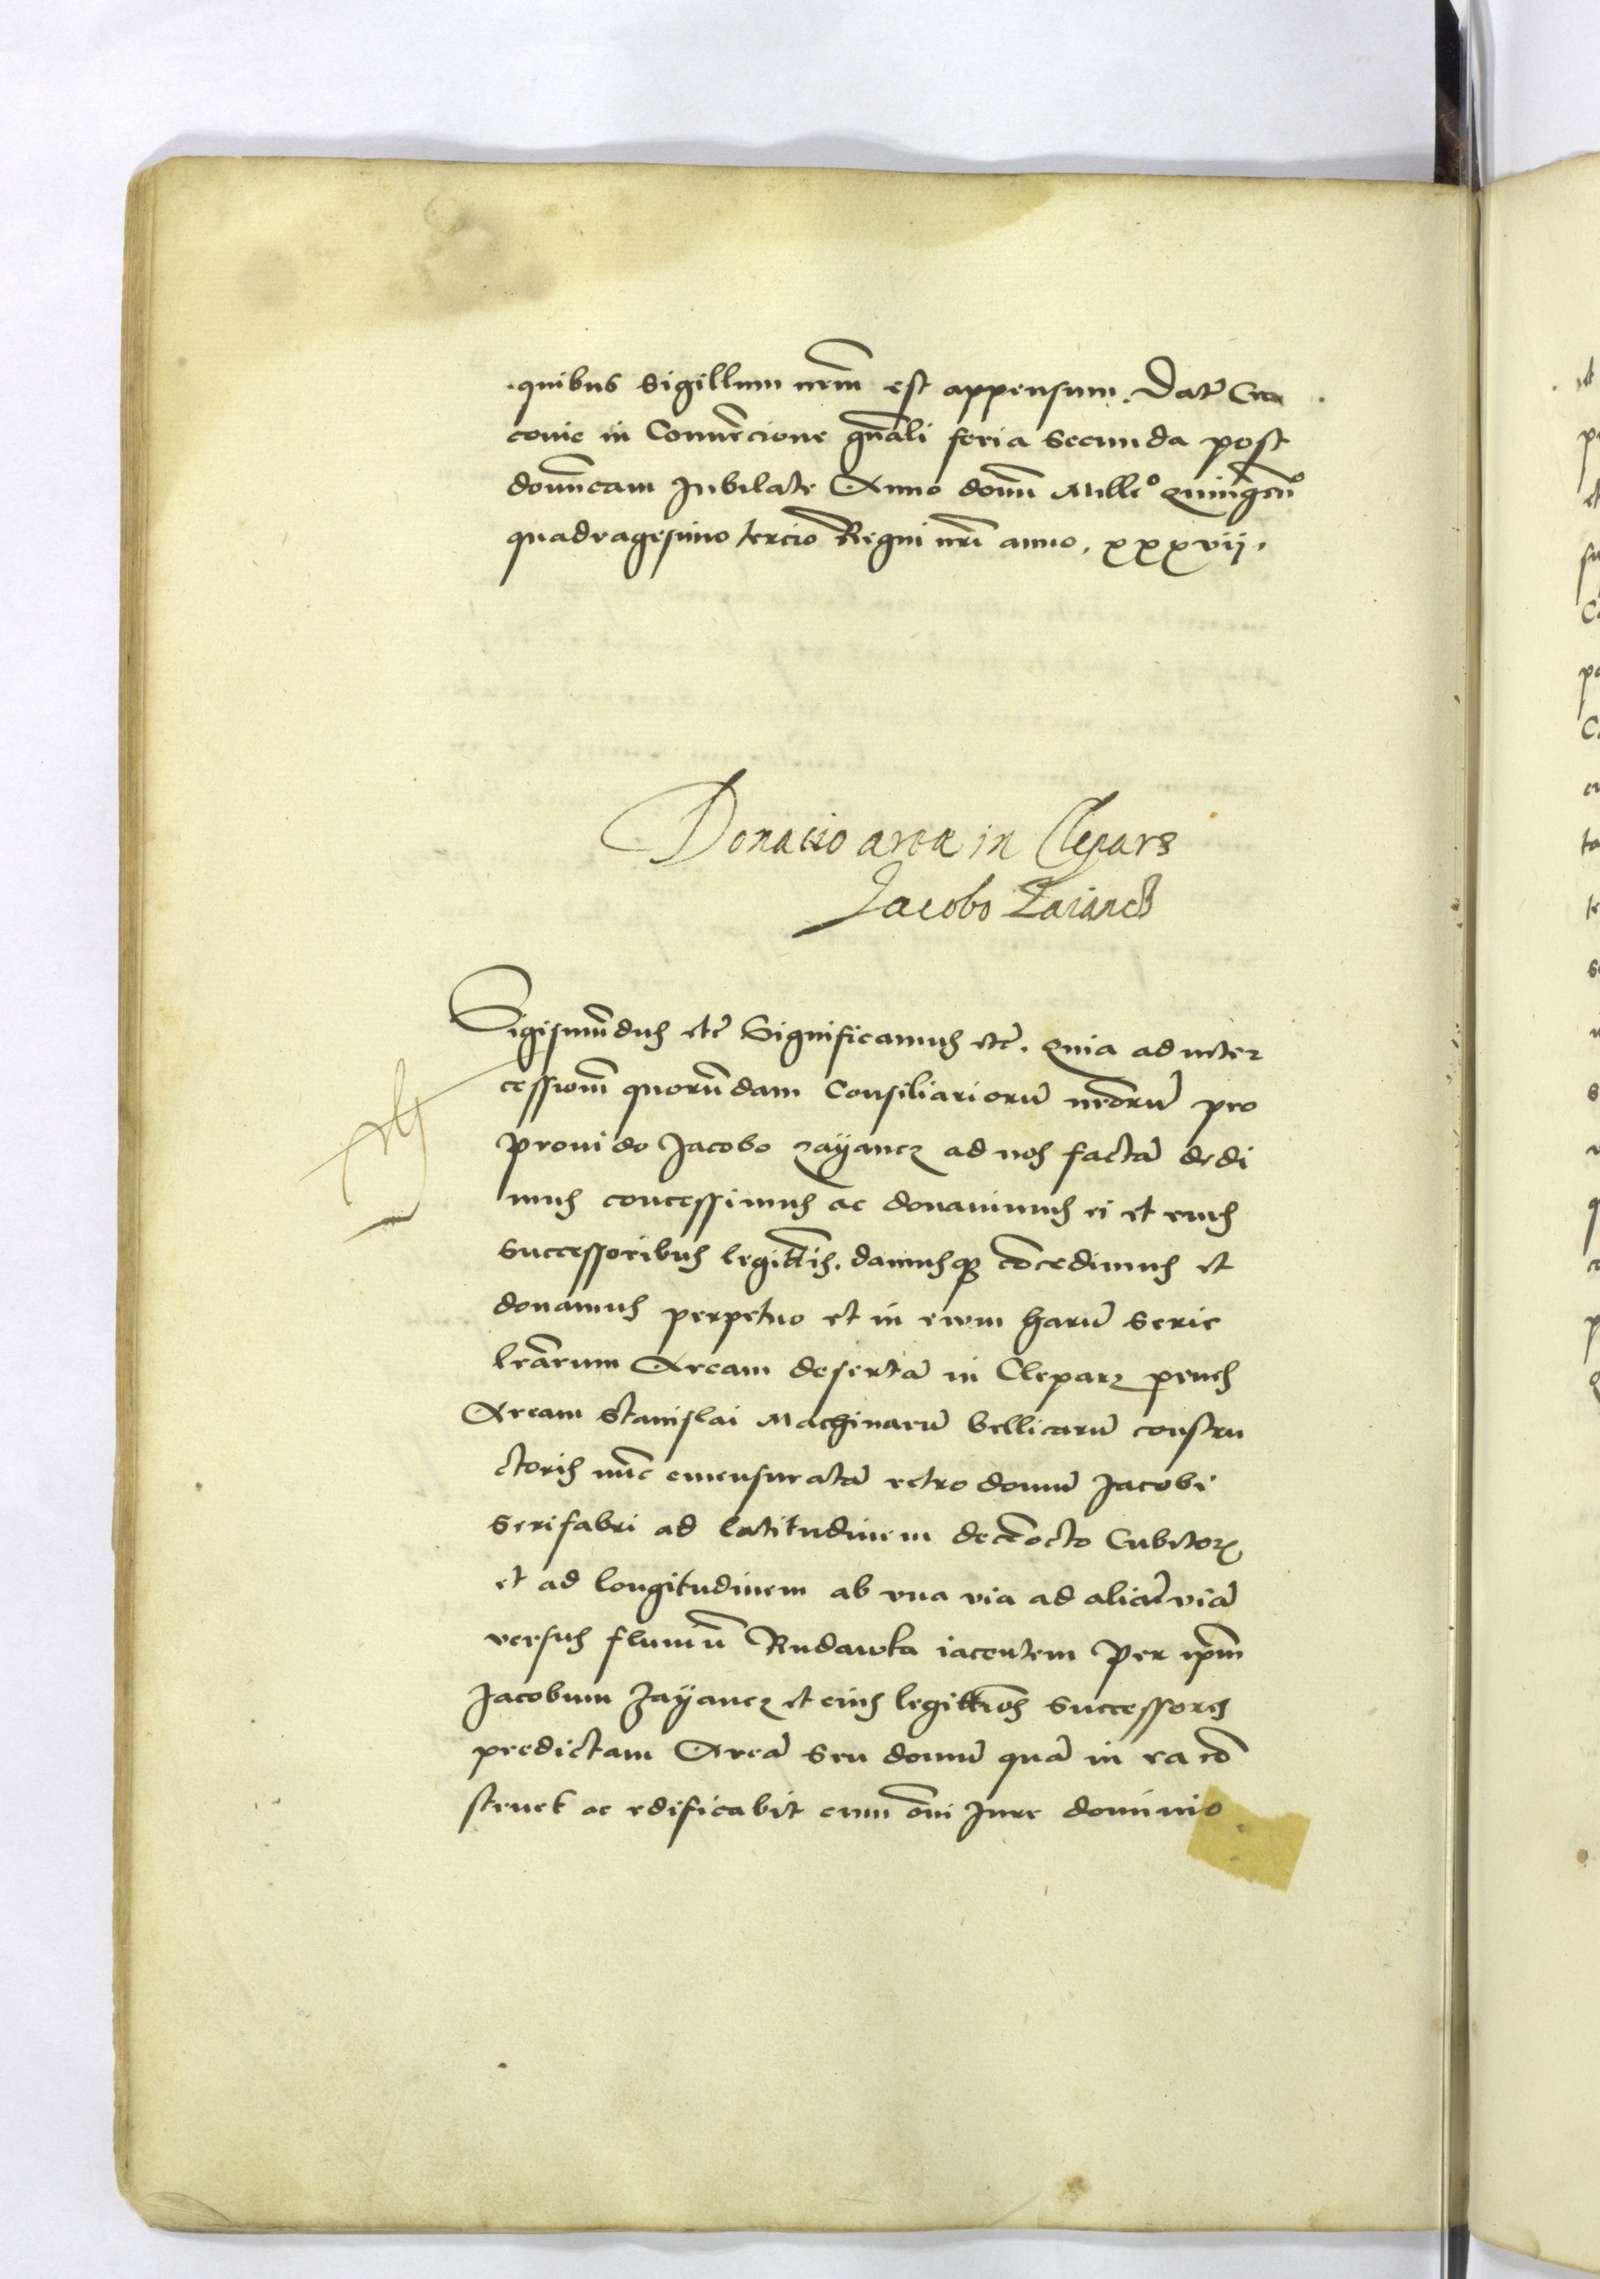 quibus sigillum nrm est appensum. Dat Cra
covie in Convencione gnali feria secunda post
domincam Jubilate Anno domi Mille° Quingen°
quadragesimo tercio Regni nri anno. xxxvij.
Donatio area in Clepars
Jacobo Zaiancz
Sigismundus etc Significamus etc. Quia ad inter
cessionem quorundam Consiliariorum nrorum pro
provido Jacobo zayancz ad nos factam dedi
mus concessimus ac donavimus ei et eius
successoribus legittimis. damusque concedimus et
donamus perpetuo et in evum harum serie
lrarum Aream desertam in Cleparz penes
Aream Stanislai Machinarum bellicarum constru
ctoris nunc emensuratam retro domum Jacobi
serifabri ad latitudinem decem octo Cubitorum
et ad longitudinem ab una via ad aliam viam
versus fluvium Rudawka iacentem Per ipsum
Jacobum Zayancz et eius legittimos successores
predictam Aream seu domum quam in ea con
struet ac edificabit cum omni Jure dominio